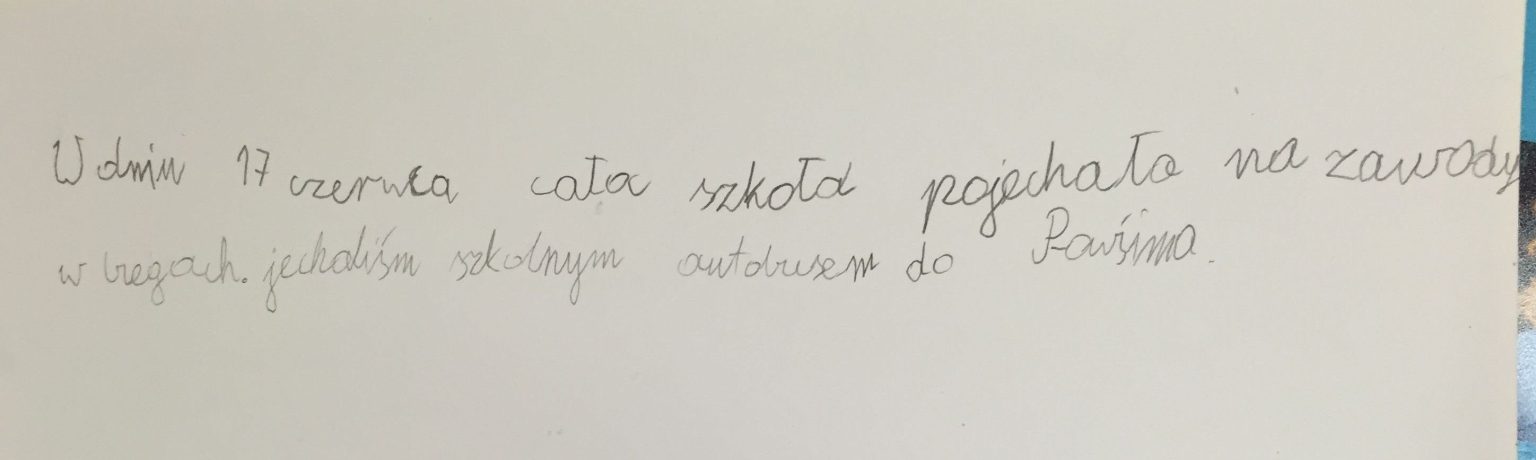 W dniu 17 czerwca cała szkoła pojechała na zawody
w bregach. jechaliśm szkolnym autobusem do Pawśina.